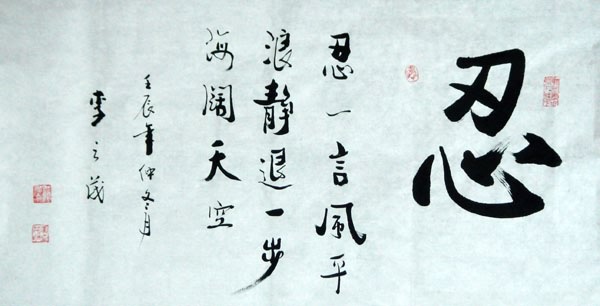 忍
忍一言风平
浪静退一步
海阔天空
壬辰年仲冬月
李之茂